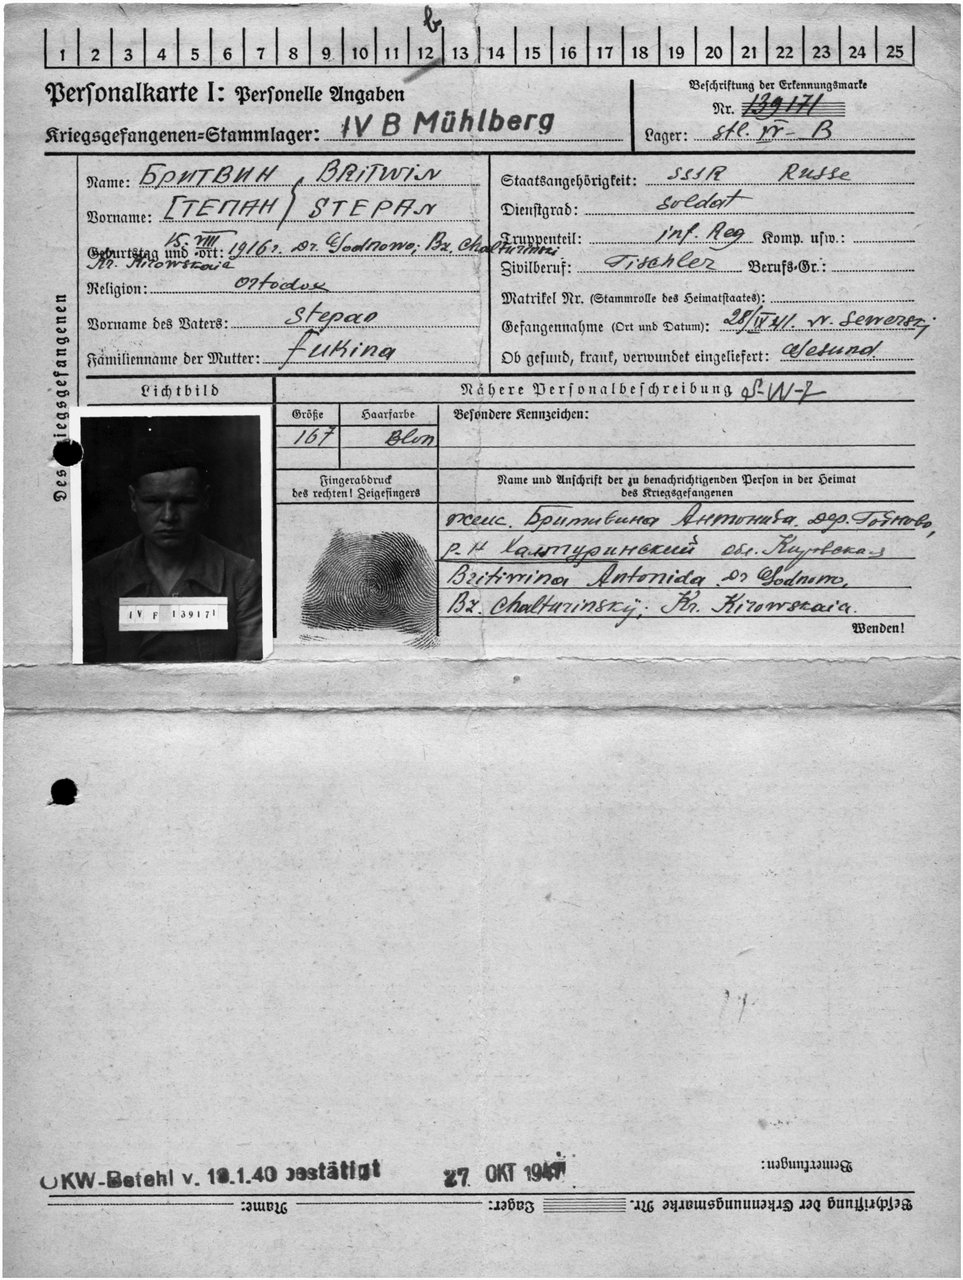 b
1 2 3 4 5 6 7 8 9 10 11 12 13 14 15 16 17 18 19 20 21 22 23 24 25
Personalkarte I: Personelle Angaben
Kriegsgefangenen=Stammlager: IV B Mühlberg
Beschriftung der Erkennungsmarke
Nr. 139171
Lager: Stl. IV-B
Des Kriegsgefangenen
Name: БРИТВИН BRITWIN
Vorname: СТЕПАН STEPAN
Geburtstag und =ort: 15. VIII 1916 г. Dr. Godnowo; Bz. Chalturinski
Kr. Kirowskaia
Religion: Ortodox
Vorname des Vaters: Stepan
Familienname der Mutter: Fukina
Staatsangehörigkeit: SSSR Russe
Dienstgrad: Soldat
Truppenteil: inf. Reg Komp. usw.:
Zivilberuf: Tischler Berufs=Gr.:
Matrikel Nr. (Stammrolle des Heimatstaates):
Gefangennahme (Ort und Datum): 28/IX 41. N. Sewerskj
Ob gesund, krank, verwundet eingeliefert: Gesund.
Lichtbild
IV F 139171
Nähere Personalbeschreibung
Größe Haarfarbe Besondere Kennzeichen:
167 Blon
Fingerabdruck
des rechten! Zeigefingers
Name und Anschrift der zu benachrichtigenden Person in der Heimat
des Kriegsgefangenen
Бритвина Антонида. дер. Годново,
р-н Халтуринский обл. Кировская
Britiwina Antonida Dr Godnowo,
Bz. Chalturinskij; Kr. Kirowskaia.
Wenden!
Bemerkungen:
OKW-Befehl v. 19.1.40 bestätigt 27. OKT 1941
Beschriftung der Erkennungsmarke Nr. Lager: Name: